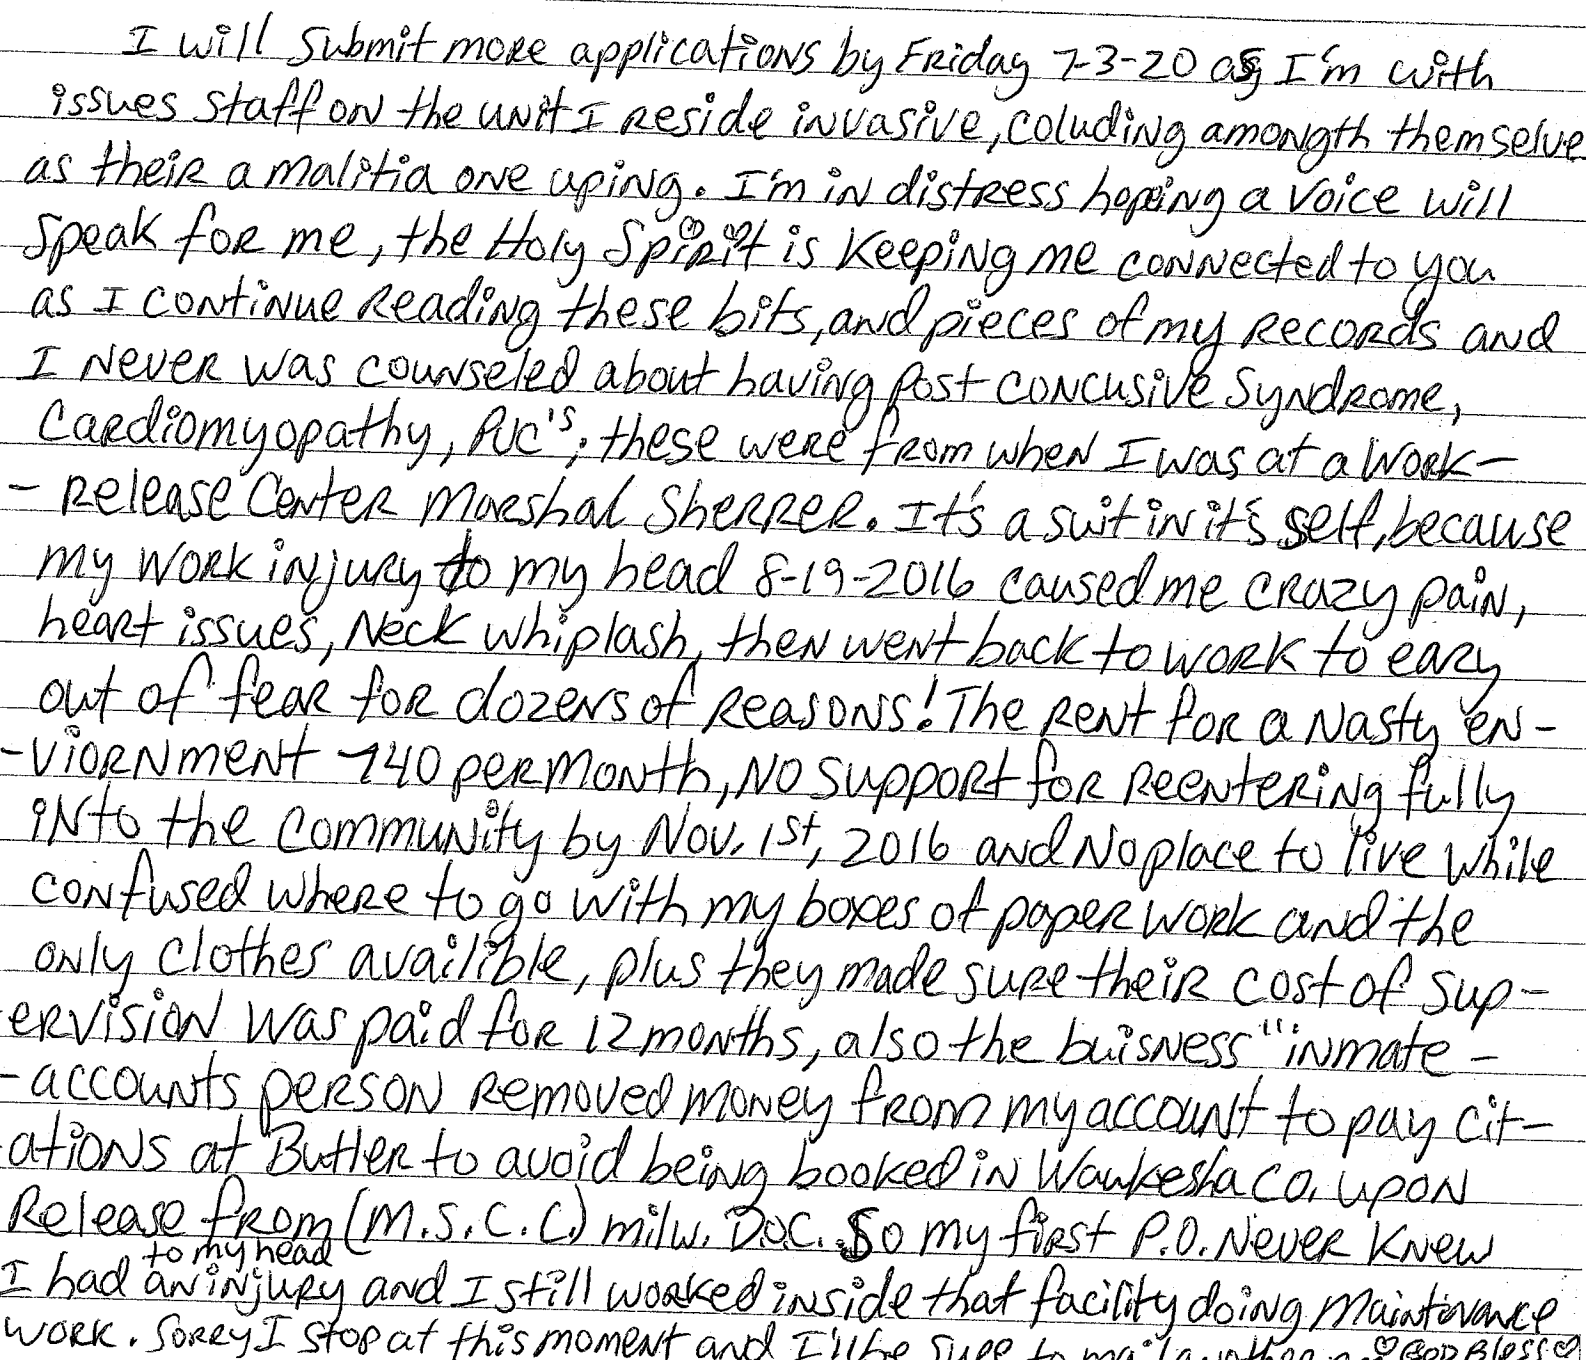 I will submit more applications by Friday 7-3-20 as I'm with
issues staff on the unit I reside invasive, coluding amongth themselve
as their a malitia one uping. I'm in distress hoping a voice will
speak for me, the Holy Spirit is keeping me connected to you
as I continue reading these bits, and pieces of my records and
I never was counseled about having Post concusive Syndrome,
Cardiomyopathy, PVC's; these were from when I was at a work-
- release Center Marshal Sherrer. It's a suit in it's self, because
my work injury to my head 8-19-2016 caused me crazy pain,
heart issues, neck whiplash, then went back to work to eazy
out of fear for dozens of reasons! The rent for a nasty en-
-viornment 740 per month, no support for reentering fully
into the community by Nov. 1st, 2016 and no place to live while
confused where to go with my boxes of paper work and the
only clothes availible, plus they made sure their cost of sup-
ervision was paid for 12 months, also the buisness "inmate -
- accounts person removed money from my account to pay cit-
ations at Butler to avoid being booked in Waukesha Co. upon
Release from (M.S.C.C.) milw. D.O.C. So my first P.O. never knew
to my head
I had an injury and I still worked inside that facility doing maintinance
work. Sorry I stop at this moment and I'll be sure to mail another ♡ GOD Bless ♡